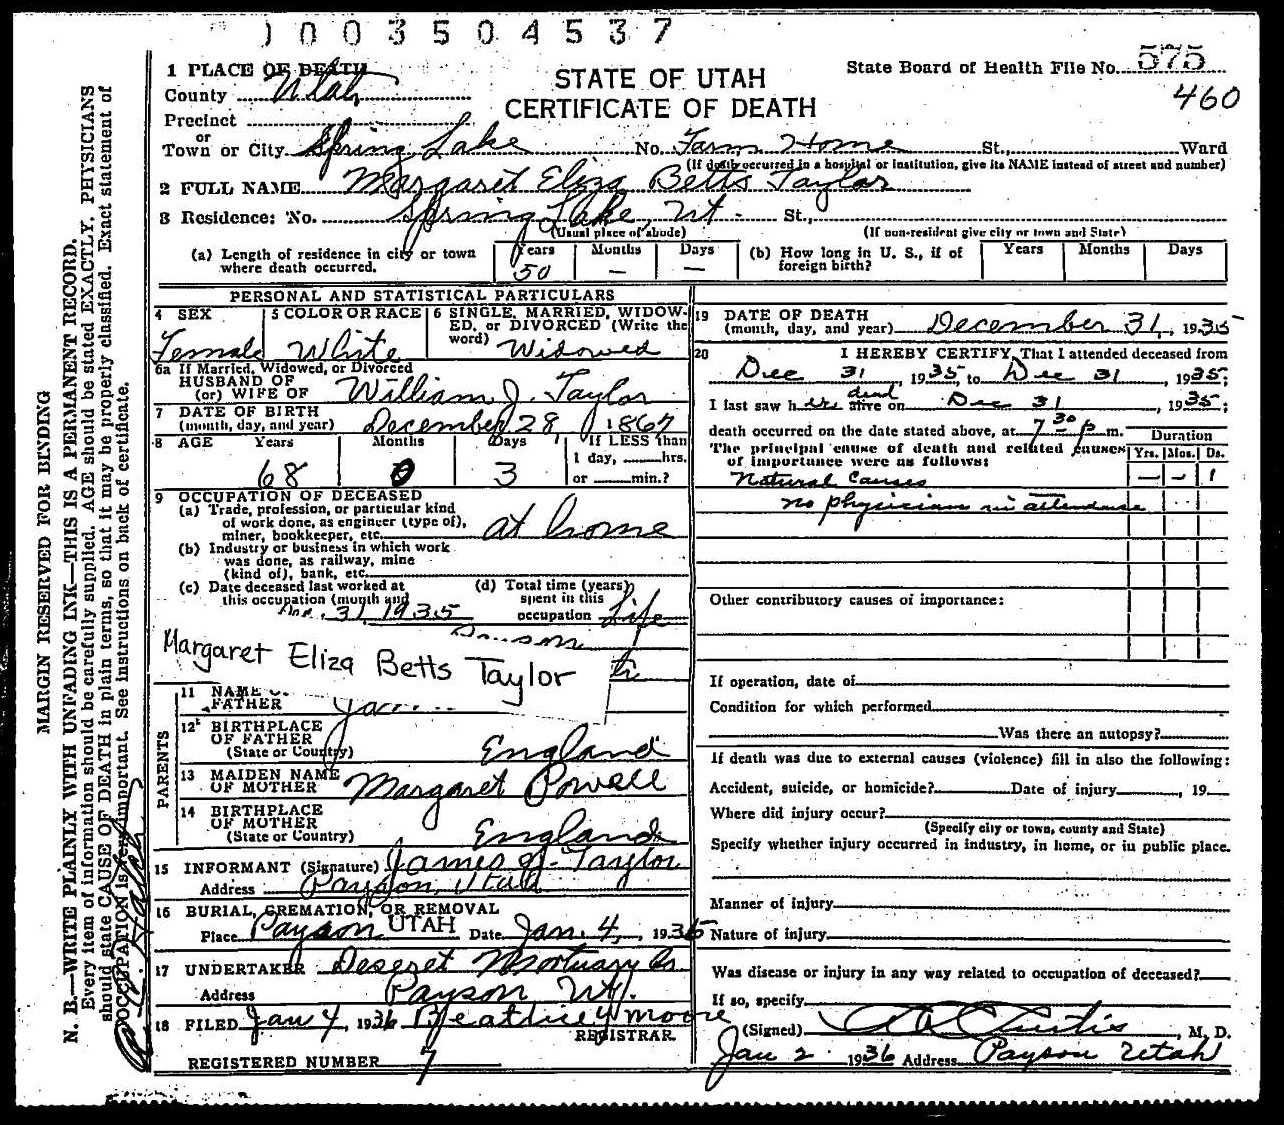 1003504537
1 PLACE OF DEATH
STATE OF UTAH
CERTIFICATE OF DEATH
State Board of Health File No. 575
460
County Utah
Precinct
or
Town or City Spring Lake No. Farm Home St., Ward
(If death occurred in a hospital or institution, give its NAME instead of street and number)
2 FULL NAME Margaret Eliza Betts Taylor
3 Residence: No. Spring Lake, Ut. St.,
(Usual place of abode) (If non-resident give city or town and State)
(a) Length of residence in city or town where death occurred. Years 50 Months — Days —
(b) How long in U. S., if of foreign birth? Years Months Days
PERSONAL AND STATISTICAL PARTICULARS
4 SEX Female
5 COLOR OR RACE White
6 SINGLE, MARRIED, WIDOWED, or DIVORCED (Write the word) Widowed
6a If Married, Widowed, or Divorced
HUSBAND OF
(or) WIFE OF William J. Taylor
7 DATE OF BIRTH
(month, day, and year) December 28, 1867
8 AGE Years 68 Months 0 Days 3 If LESS than
1 day, hrs.
or min.?
9 OCCUPATION OF DECEASED
(a) Trade, profession, or particular kind
of work done, as engineer (type of),
miner, bookkeeper, etc. at home
(b) Industry or business in which work
was done, as railway, mine
(kind of), bank, etc.
(c) Date deceased last worked at
this occupation (month and
31 1935
(d) Total time (years)
spent in this
occupation Life
Margaret Eliza Betts Taylor
11 NAME
FATHER
12 BIRTHPLACE
OF FATHER
(State or Country) England
13 MAIDEN NAME
OF MOTHER Margaret Powell
14 BIRTHPLACE
OF MOTHER
(State or Country) England
PARENTS
15 INFORMANT (Signature) James J. Taylor
Address Payson, Utah
16 BURIAL, CREMATION, OR REMOVAL
Place Payson UTAH Date Jan. 4, 1936
17 UNDERTAKER Deseret Mortuary Co.
Address Payson Ut.
18 FILED Jan 4, 1936 Beatrice Moore
REGISTRAR.
REGISTERED NUMBER 7
19 DATE OF DEATH
(month, day, and year) December 31, 1935
20 I HEREBY CERTIFY, That I attended deceased from
Dec 31, 1935, to Dec 31, 1935;
I last saw her dead alive on Dec 31, 1935;
death occurred on the date stated above, at 7 30 p m.
The principal cause of death and related causes
of importance were as follows:
Duration
Yrs. Mos. Ds.
Natural Causes — — 1
no physician in attendance
Other contributory causes of importance:
If operation, date of
Condition for which performed
Was there an autopsy?
If death was due to external causes (violence) fill in also the following:
Accident, suicide, or homicide? Date of injury , 19
Where did injury occur?
(Specify city or town, county and State)
Specify whether injury occurred in industry, in home, or in public place.
Manner of injury
Nature of injury
Was disease or injury in any way related to occupation of deceased?
If so, specify
(Signed) Curtis, M. D.
Jan 2 1936 Address Payson Utah
MARGIN RESERVED FOR BINDING
N. B.—WRITE PLAINLY WITH UNFADING INK—THIS IS A PERMANENT RECORD.
Every item of information should be carefully supplied. AGE should be stated EXACTLY. PHYSICIANS
should state CAUSE OF DEATH in plain terms, so that it may be properly classified. Exact statement of
OCCUPATION is important. See instructions on back of certificate.